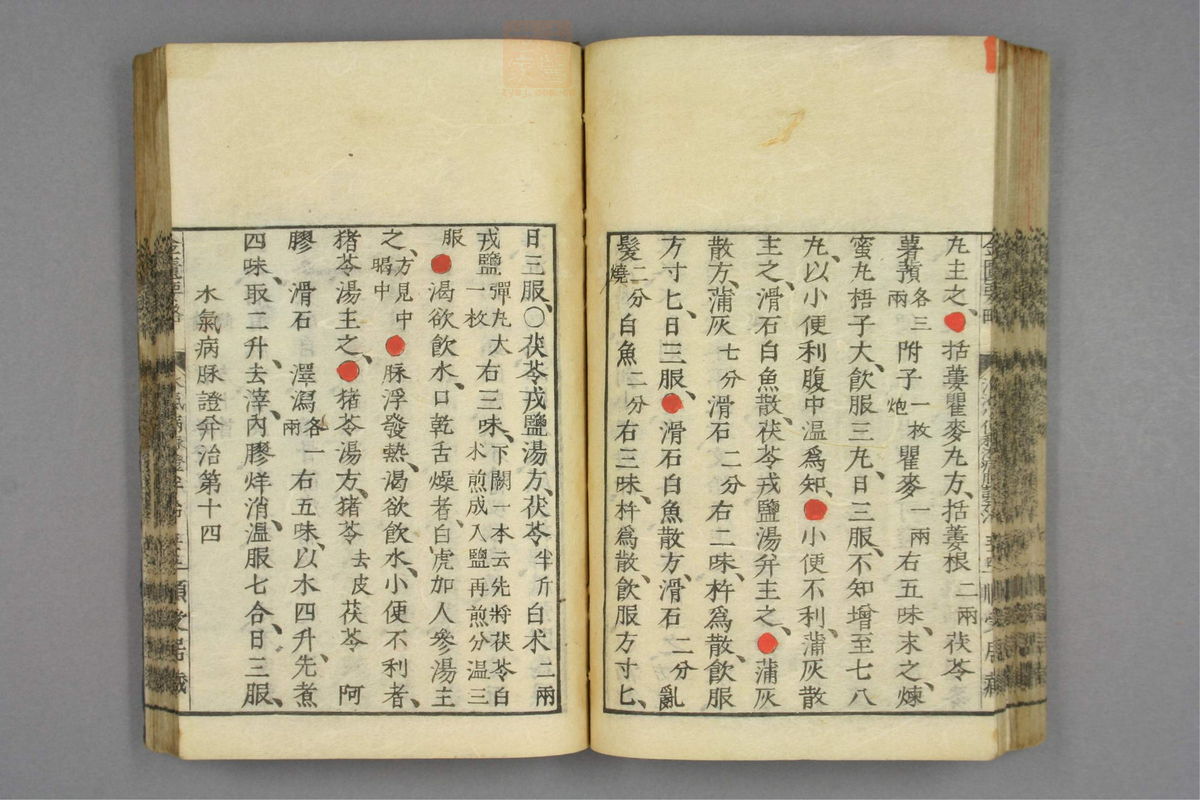 丸主之、●括蔞瞿麥丸方、括蔞根二兩茯苓
薯蕷各三兩附子一枚炮瞿麥一兩右五味、末之、煉
蜜丸梧子大、飲服三丸、日三服、不知增至七八
丸、以小便利腹中温爲知、●小便不利、蒲灰散
主之、滑石白魚散、茯苓戎鹽湯并主之、●蒲灰
散方、蒲灰七分滑石二分右二味、杵爲散、飲服
方寸匕、日三服、●滑石白魚散方、滑石二分亂
髮二分燒白魚二分右三味、杵爲散、飲服方寸匕、
日三服、○茯苓戎鹽湯方、茯苓半斤白朮二兩
戎鹽彈丸大一枚右三味、下闕一本云先將茯苓白朮煎成入鹽再煎分温三
服●渴欲飲水、口乾舌燥者、白虎加人參湯主
之、方見中暍中●脉浮發熱、渴欲飲水、小便不利者、
猪苓湯主之、●猪苓湯方、猪苓去皮茯苓 阿
膠 滑石 澤瀉各一兩右五味、以水四升、先煮
四味、取二升、去滓、內膠烊消、温服七合、日三服、
水氣病脉證并治第十四